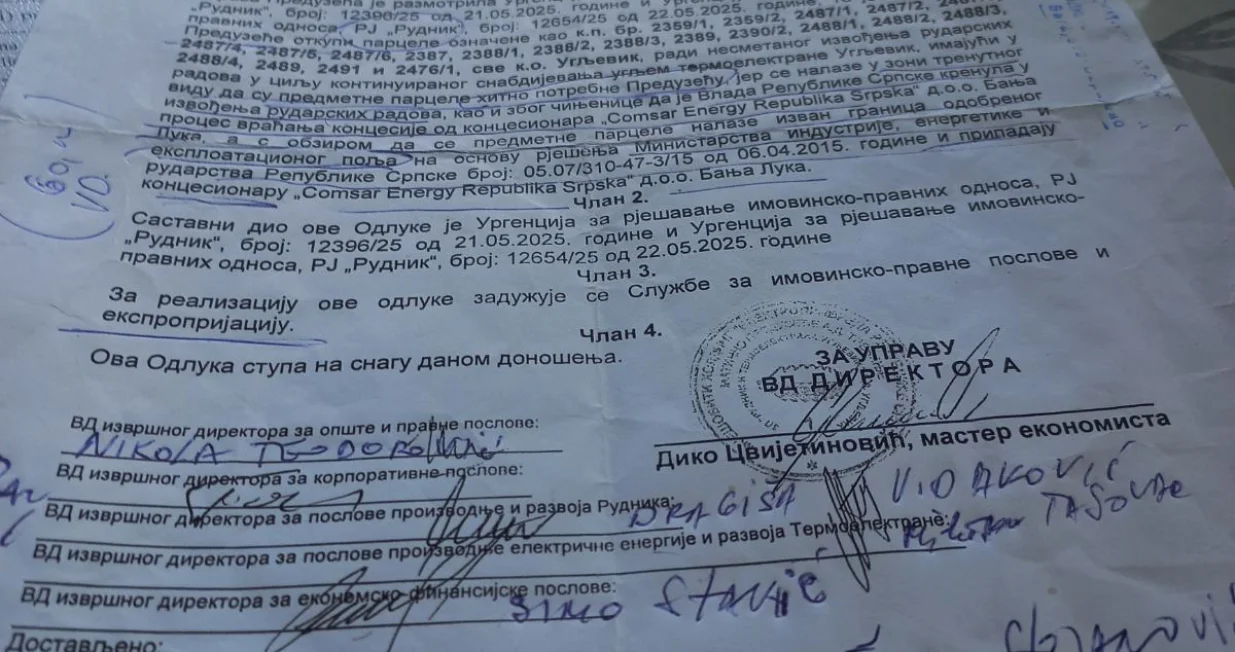 Предузећа је размотрила
„Рудник", број: 12396/25 од 21.05.2025. године и
правних односа, РЈ „Рудник", број: 12654/25 од 22.05.2025. године,
Предузеће откупи парцеле означене као к.п. бр. 2359/1, 2359/2, 2487/1, 2487/2,
2487/4, 2487/5, 2487/6, 2387, 2388/1, 2388/2, 2388/3, 2389, 2390/2, 2488/1, 2488/2, 2488/3,
2488/4, 2489, 2491 и 2476/1, све к.о. Угљевик, ради несметаног извођења рударских
радова у циљу континуираног снабдијевања угљем термоелектране Угљевик, имајући у
виду да су предметне парцеле хитно потребне Предузећу, јер се налазе у зони тренутног
извођења рударских радова, као и због чињенице да је Влада Републике Српске кренула у
процес враћања концесије од концесионара „Comsar Energy Republika Srpska" д.о.о. Бања
Лука, а с обзиром да се предметне парцеле налазе изван граница одобреног
експлоатационог поља на основу рјешења Министарства индустрије, енергетике и
рударства Републике Српске број: 05.07/310-47-3/15 од 06.04.2015. године и припадају
концесионару „Comsar Energy Republika Srpska" д.о.о. Бања Лука.
Члан 2.
Саставни дио ове Одлуке је Ургенција за рјешавање имовинско-правних односа, РЈ
„Рудник", број: 12396/25 од 21.05.2025. године и Ургенција за рјешавање имовинско-
правних односа, РЈ „Рудник", број: 12654/25 од 22.05.2025. године
Члан 3.
За реализацију ове одлуке задужује се Службе за имовинско-правне послове и
експропријацију.
Члан 4.
Ова Одлука ступа на снагу даном доношења.
ЗА УПРАВУ
ВД ДИРЕКТОРА
Дико Цвијетиновић, мастер економиста
ВД извршног директора за опште и правне послове:
NIKOLA
ВД извршног директора за корпоративне послове:
ВД извршног директора за послове производње и развоја Рудника:
DRAGIŠA VIDAKOVIĆ
ВД извршног директора за послове производње електричне енергије и развоја Термоелектране:
ВД извршног директора за економско-финансијске послове:
SIMO Stakić
Достављено: